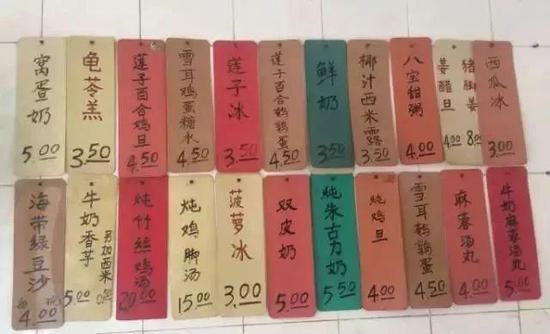 窝蛋奶
5.00
龟苓羔
3.50
莲子百合鸡旦
4.50
雪耳鸡蛋糖水
4.50
莲子冰
3.50
莲子百合鹌鹑蛋
4.50
鲜奶
3.50
椰汁西米露
3.50
八宝甜粥
4.00
姜醋旦
4.00
猪脚姜
8.00
西瓜冰
3.00
海带绿豆沙
4.00
牛奶香芋
5.00
另加西米
炖竹丝鸡汤
20.00
炖鸡脚汤
15.00
菠萝冰
3.00
双皮奶
5.00
炖朱古力奶
5.50
炖鸡旦
4.00
雪耳鹌鹑蛋
4.50
麻蓉汤丸
4.00
牛奶麻蓉汤丸
5.00